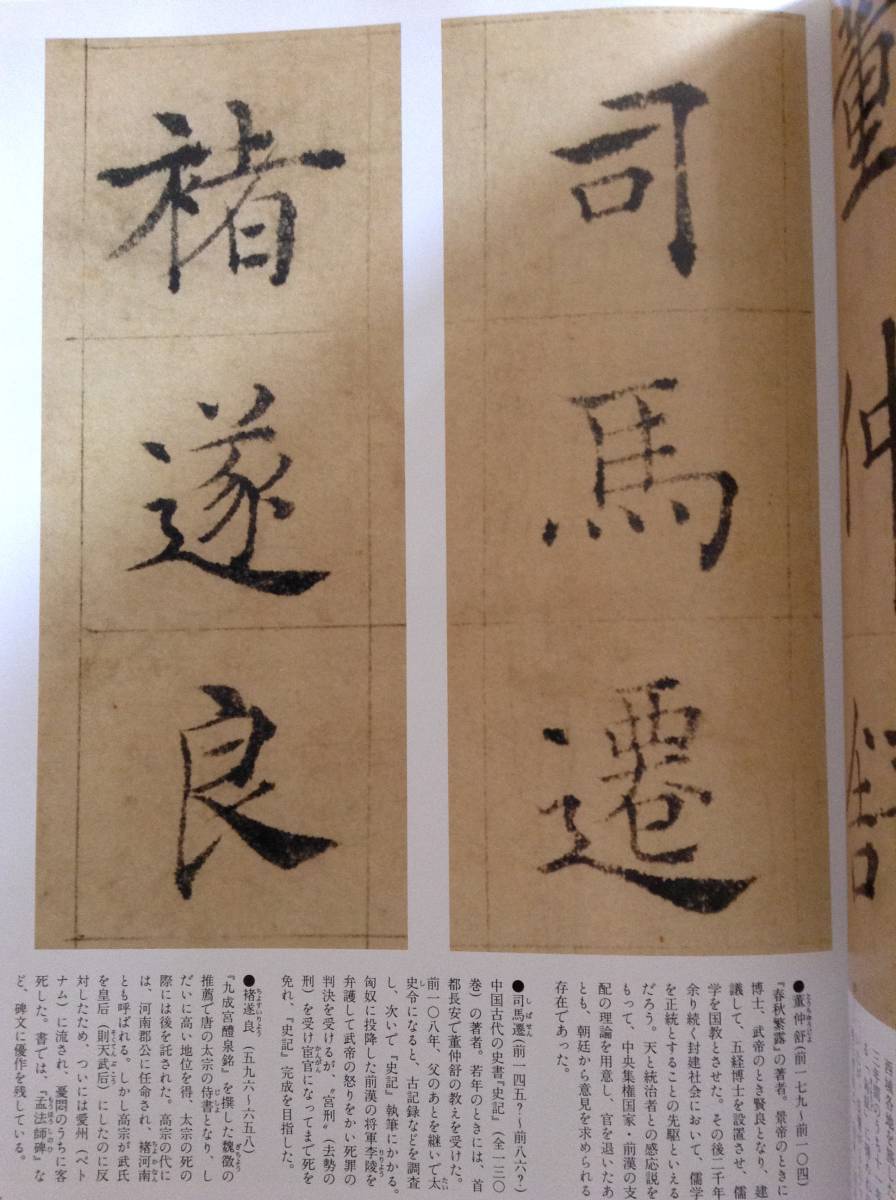 董
仲
舒
司
馬
遷
褚
遂
良
●董仲舒(前一七九〜前一〇四)
『春秋繁露』の著者。景帝のときに
博士、武帝のとき賢良となり、建
議して、五経博士を設置させ、儒
学を国教とさせた。その後二千年
余り続く封建社会において、儒学
を正統とすることの先駆といえる
だろう。天と統治者との感応説を
もって、中央集権国家・前漢の支
配の理論を用意し、官を退いたあ
とも、朝廷から意見を求められる
存在であった。
●司馬遷(前一四五?〜前八六?)
中国古代の史書『史記』(全一三〇
巻)の著者。若年のときには、首
都長安で董仲舒の教えを受けた。
前一〇八年、父のあとを継いで太
史令になると、古記録などを調査
し、次いで『史記』執筆にかかる。
匈奴に投降した前漢の将軍李陵を
弁護して武帝の怒りをかい死罪の
判決を受けるが、〝宮刑〟(去勢の
刑)を受け宦官になってまで死を
免れ、『史記』完成を目指した。
●褚遂良(五九六〜六五八)
『九成宮醴泉銘』を撰した魏徴の
推薦で唐の太宗の侍書となり、し
だいに高い地位を得、太宗の死の
際には後を託された。高宗の代に
は、河南郡公に任命され、褚河南
とも呼ばれる。しかし高宗が武氏
を皇后(則天武后)にしたのに反
対したため、ついには愛州(ベト
ナム)に流され、憂悶のうちに客
死した。書では、『孟法師碑』な
ど、碑文に優作を残している。